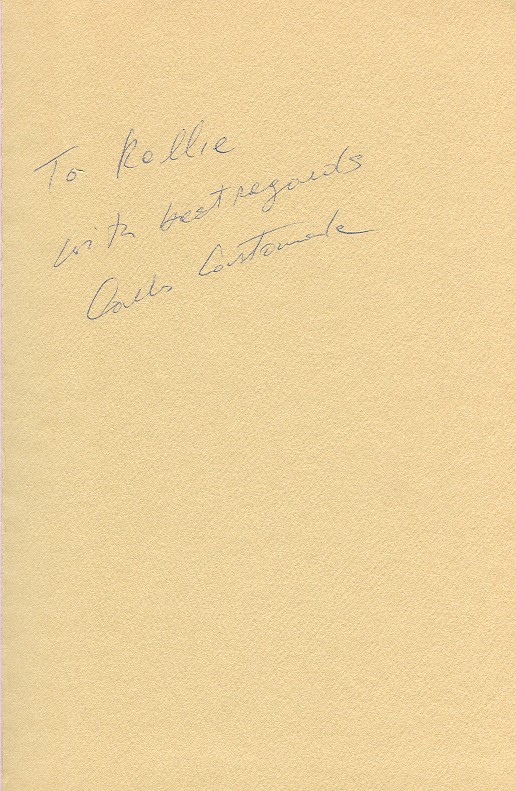 To Kellie
with best regards
Carlos Castaneda